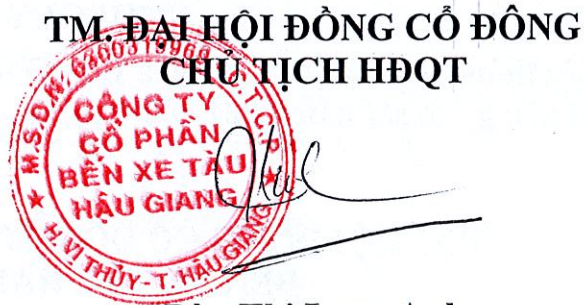 TM. ĐẠI HỘI ĐỒNG CỔ ĐÔNG
CHỦ TỊCH HĐQT
M.S.D.N: 6300319969 C.T.C.P
CÔNG TY
CỔ PHẦN
BẾN XE TÀU
HẬU GIANG
H. VỊ THỦY - T. HẬU GIANG